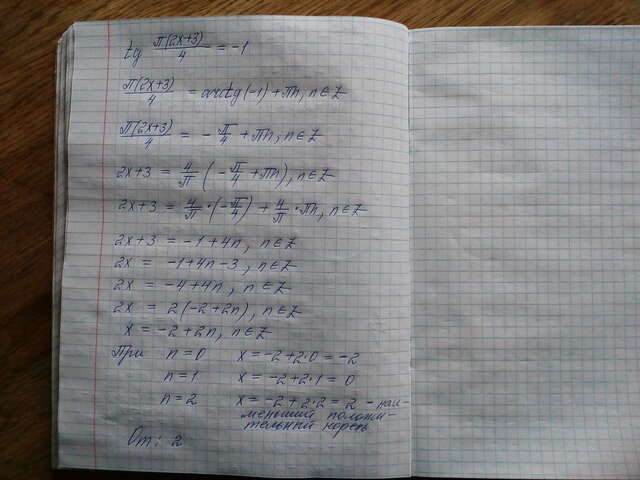 tg π(2x+3)/4 = -1
π(2x+3)/4 = arctg(-1) + πn, n∈Z
π(2x+3)/4 = -π/4 + πn, n∈Z
2x+3 = 4/π (-π/4 + πn), n∈Z
2x+3 = 4/π · (-π/4) + 4/π · πn, n∈Z
2x+3 = -1+4n, n∈Z
2x = -1+4n-3, n∈Z
2x = -4+4n, n∈Z
2x = 2(-2+2n), n∈Z
x = -2+2n, n∈Z
При n=0 x=-2+2·0=-2
n=1 x=-2+2·1=0
n=2 x=-2+2·2=2 - наи-
меньший положи-
тельный корень
От: 2